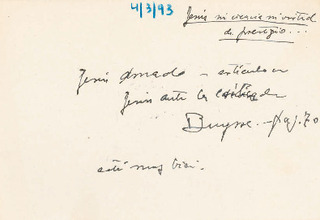 4/3/93
Jesús ni ciencia ni virtud
de prestigio...
Jesús Amado - artículo en
Jesús ante la crítica de
Duyse - pag. 70
está muy bien.